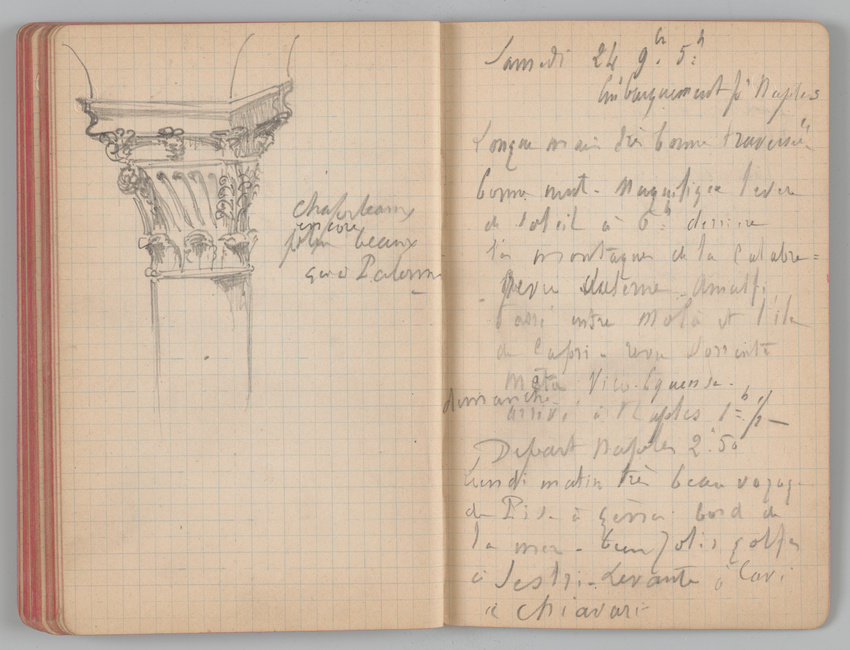 chapiteaux
encore
plus beaux
qu'à Palerme
Samedi 24 9bre 5h
Embarquement pr Naples
Longue mais très bonne traversée
bonne nuit - Magnifique lever
de soleil à 6h derrière
les montagnes de la Calabre =
Revu Salerne - Amalfi
Passé entre Mola et l'île
de Capri - revu Sorrente
Méta Vico-Equense -
dimanche
arrivé à Naples 1h 1/2 -
Départ Naples 2h 50
Lundi matin très beau voyage
de Pise à Gênes bord de
la mer - jolis golfes
à Sestri-Levante à Cavi
à Chiavari